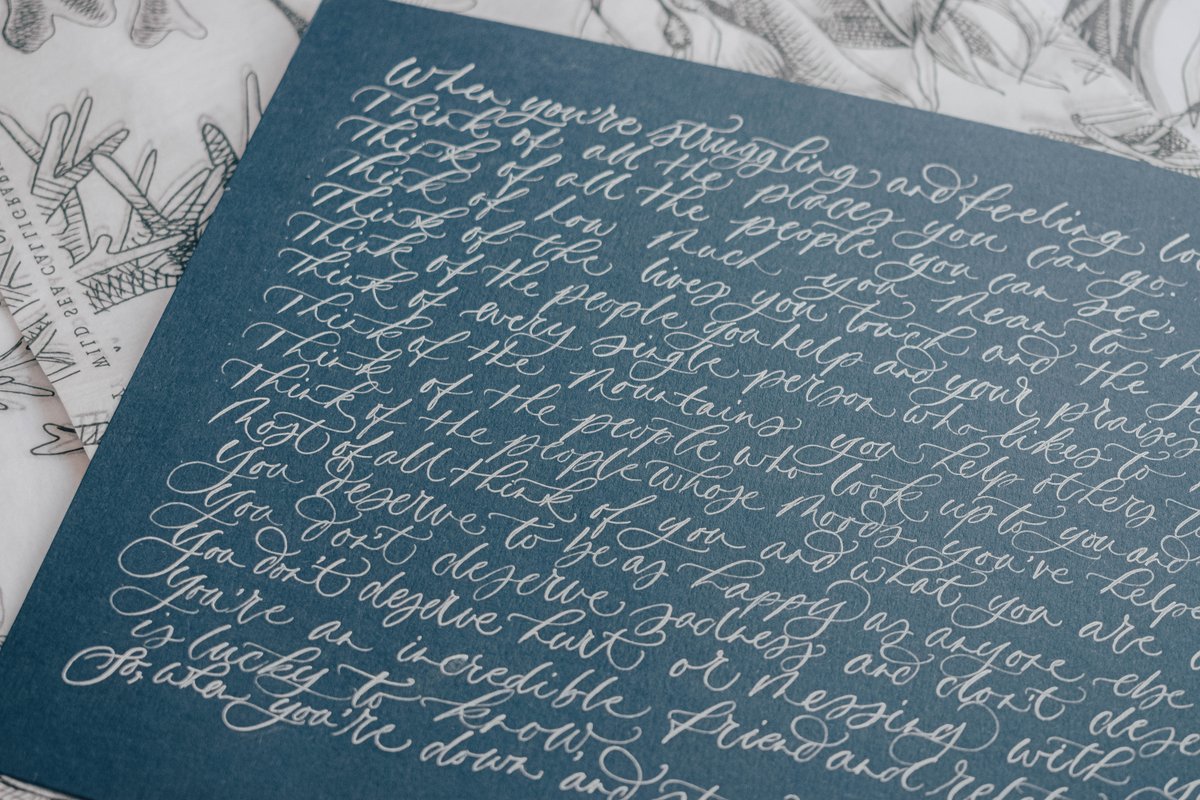 When you're struggling and feeling
Think of all the places you can go.
Think of all the people you can see,
Think of how much you mean to
Think of the lives you touch and the
Think of the people you help and your praises
Think of every single person who likes to
Think of the mountains you help others
Think of the people who look up to you and
Think of the people whose moods you've helped
Most of all think of you and what you are
You deserve to be as happy as anyone else
You don't deserve sadness and don't
You don't deserve hurt or messing with
You're an incredible friend and
is lucky to know,
So, when you're down and
WILD SEA CALLIGRAPHY